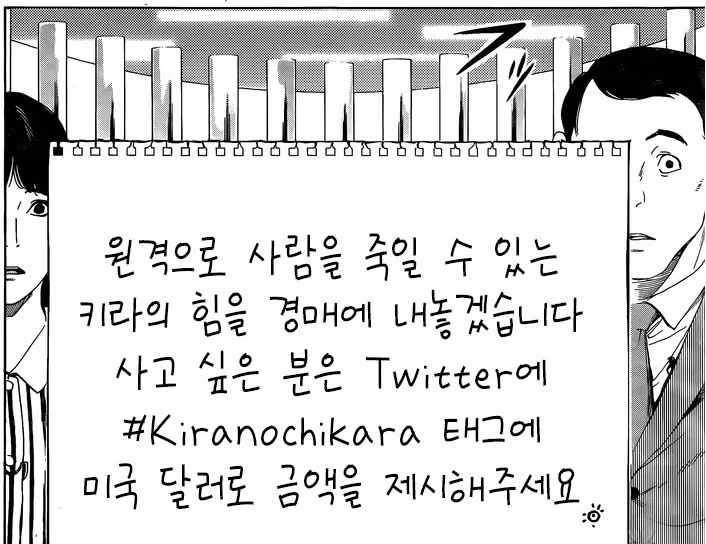 원격으로 사람을 죽일 수 있는
키라의 힘을 경매에 내놓겠습니다
사고 싶은 분은 Twitter에
#Kiranochikara 태그에
미국 달러로 금액을 제시해주세요